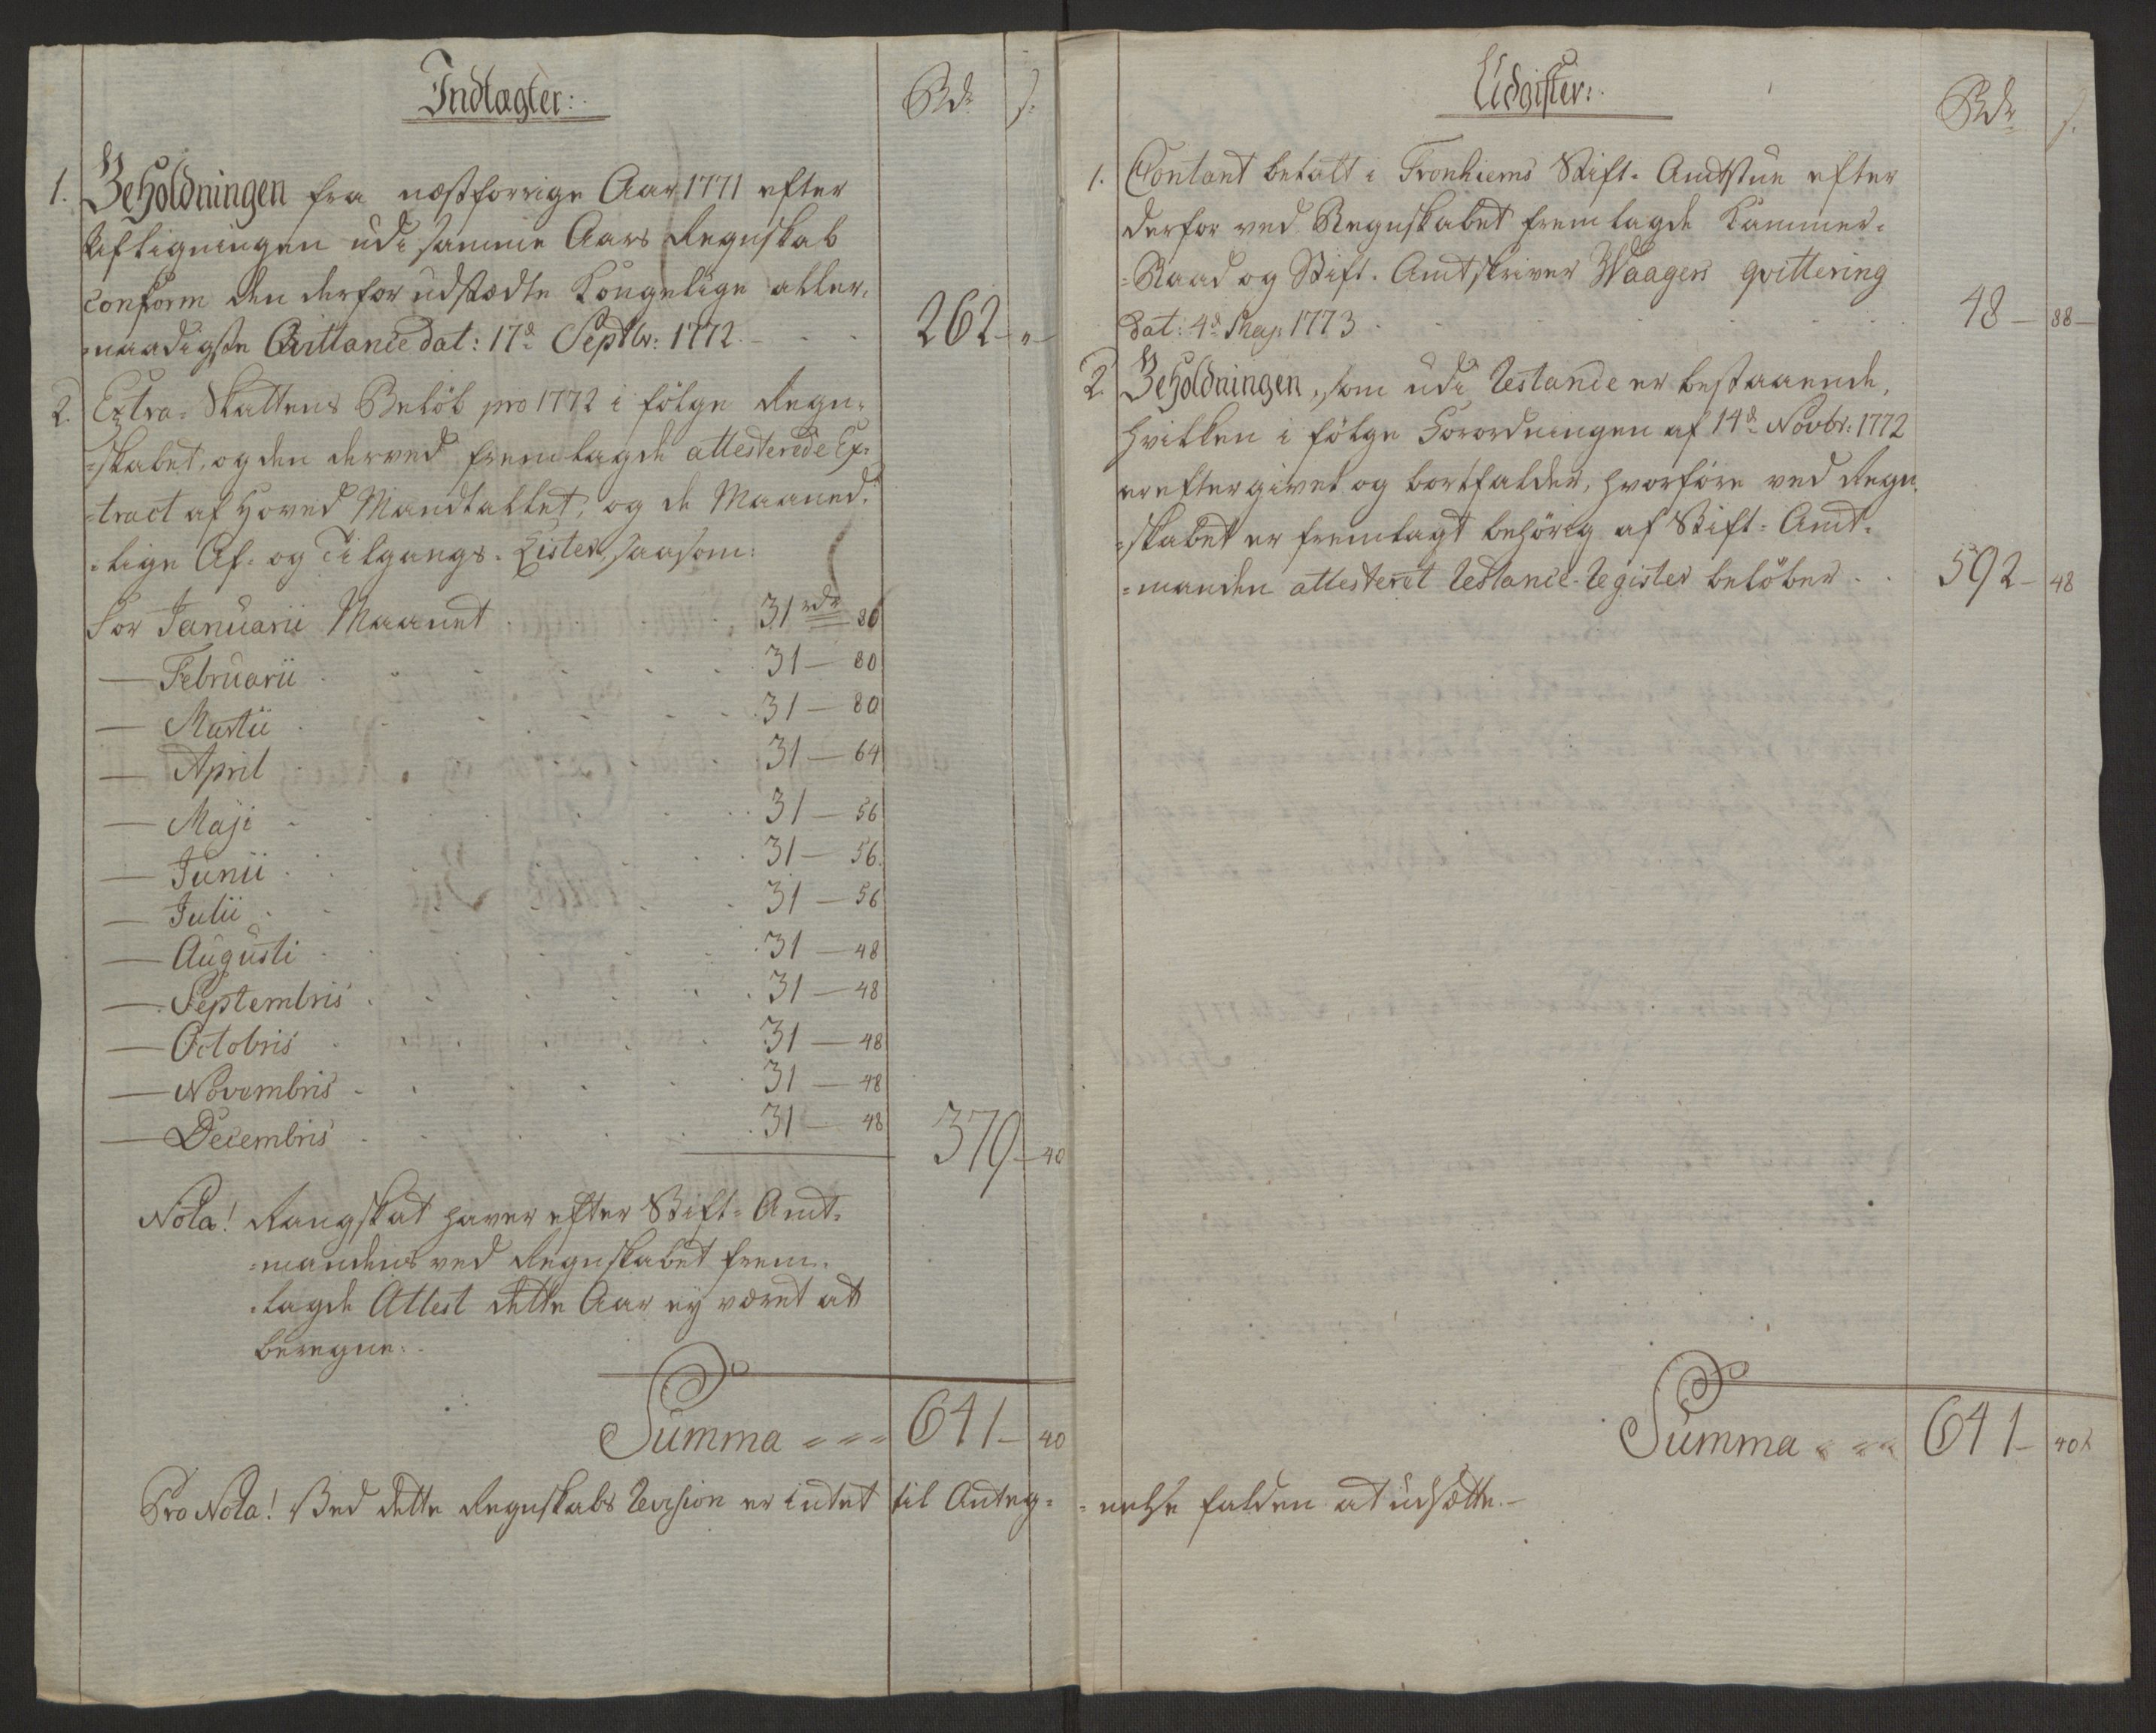 Indtægter:
Rdr s.
1. Beholdningen fra næstforrige Aar 1771 efter
Afligningen udi samme Aars Regnskab
conform den derfor udstædte Kongelige aller-
naadigste Qvittance dat: 17d Septbr: 1772. 262 - "
2. Extra-Skattens Beløb pro 1772 i følge Regn-
skabet, og den derved fremlagde attesterede Ex-
tract af Hoved Mandtallet, og de Maaned-
lige Af- og Tilgangs-Lister, saasom:
For Januarii Maanet 31 rdr 80
— Februarii 31 — 80
— Martii 31 — 80
— April 31 — 64
— Maji 31 — 56
— Junii 31 — 56.
— Julii 31 — 56
— Augusti 31 — 48
— Septembris 31 — 48
— Octobris 31 — 48
— Novembris 31 — 48
— Decembris 31 — 48
379 - 40
Nota! Rangskat haver efter Stift-Amt-
mandens ved Regnskabet frem-
lagde Attest dette Aar ey været at
beregne.
Summa 641 - 40
Udgifter:
Rdr s.
1. Contant betalt i Tronhiems Stift-Amtstue efter
derfor ved Regnskabet fremlagde Kammer-
Raad og Stift-Amtskriver Waagers qvittering
dat: 4d Maji 1773 48 - 88
2. Beholdningen, som udi Restance er bestaaende,
hvilken i følge Forordningen af 14d Novbr: 1772
er eftergivet og bortfalder, hvorfore ved Regn-
skabet er fremlagt behørig af Stift-Amt-
manden attesteret Restance-Register beløber 592 - 48
Summa 641 - 40
Pro Nota! Ved dette Regnskabs Revision er intet til Anteg-
nelse falden at udsætte.